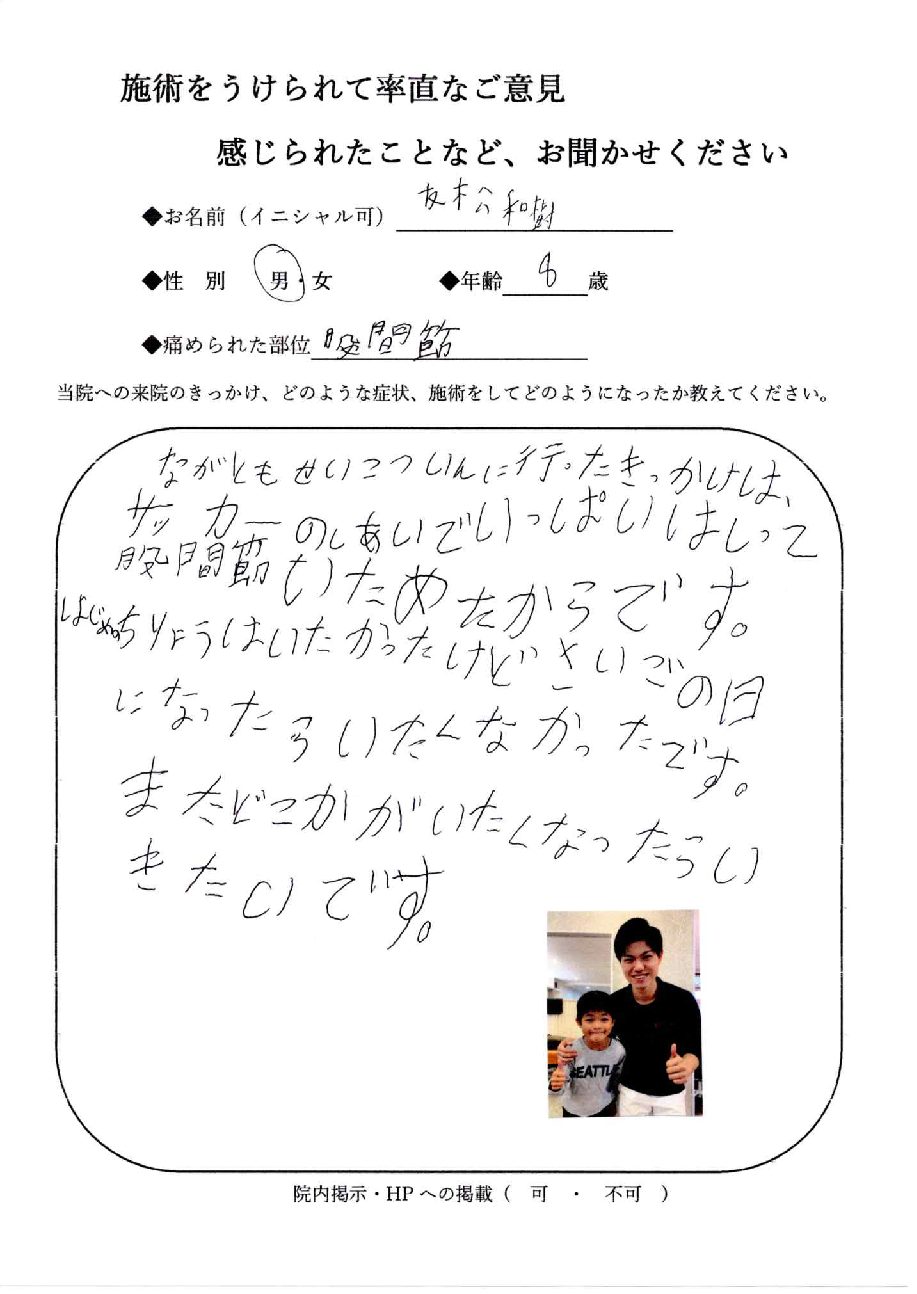 施術をうけられて率直なご意見
感じられたことなど、お聞かせください
◆お名前（イニシャル可） 友松和樹
◆性 別 男・女 ◆年齢 8 歳
◆痛められた部位 股間節
当院への来院のきっかけ、どのような症状、施術をしてどのようになったか教えてください。
ながともせいこついんに行ったきっかけは、
サッカーのしあいでいっぱいはしって
股間節いためたからです。
はじめのちりょうはいたかったけどさいごの日
になったらいたくなかったです。
またどこかがいたくなったらい
きたいです。
SEATTLE
院内掲示・HPへの掲載（ 可 ・ 不可 ）